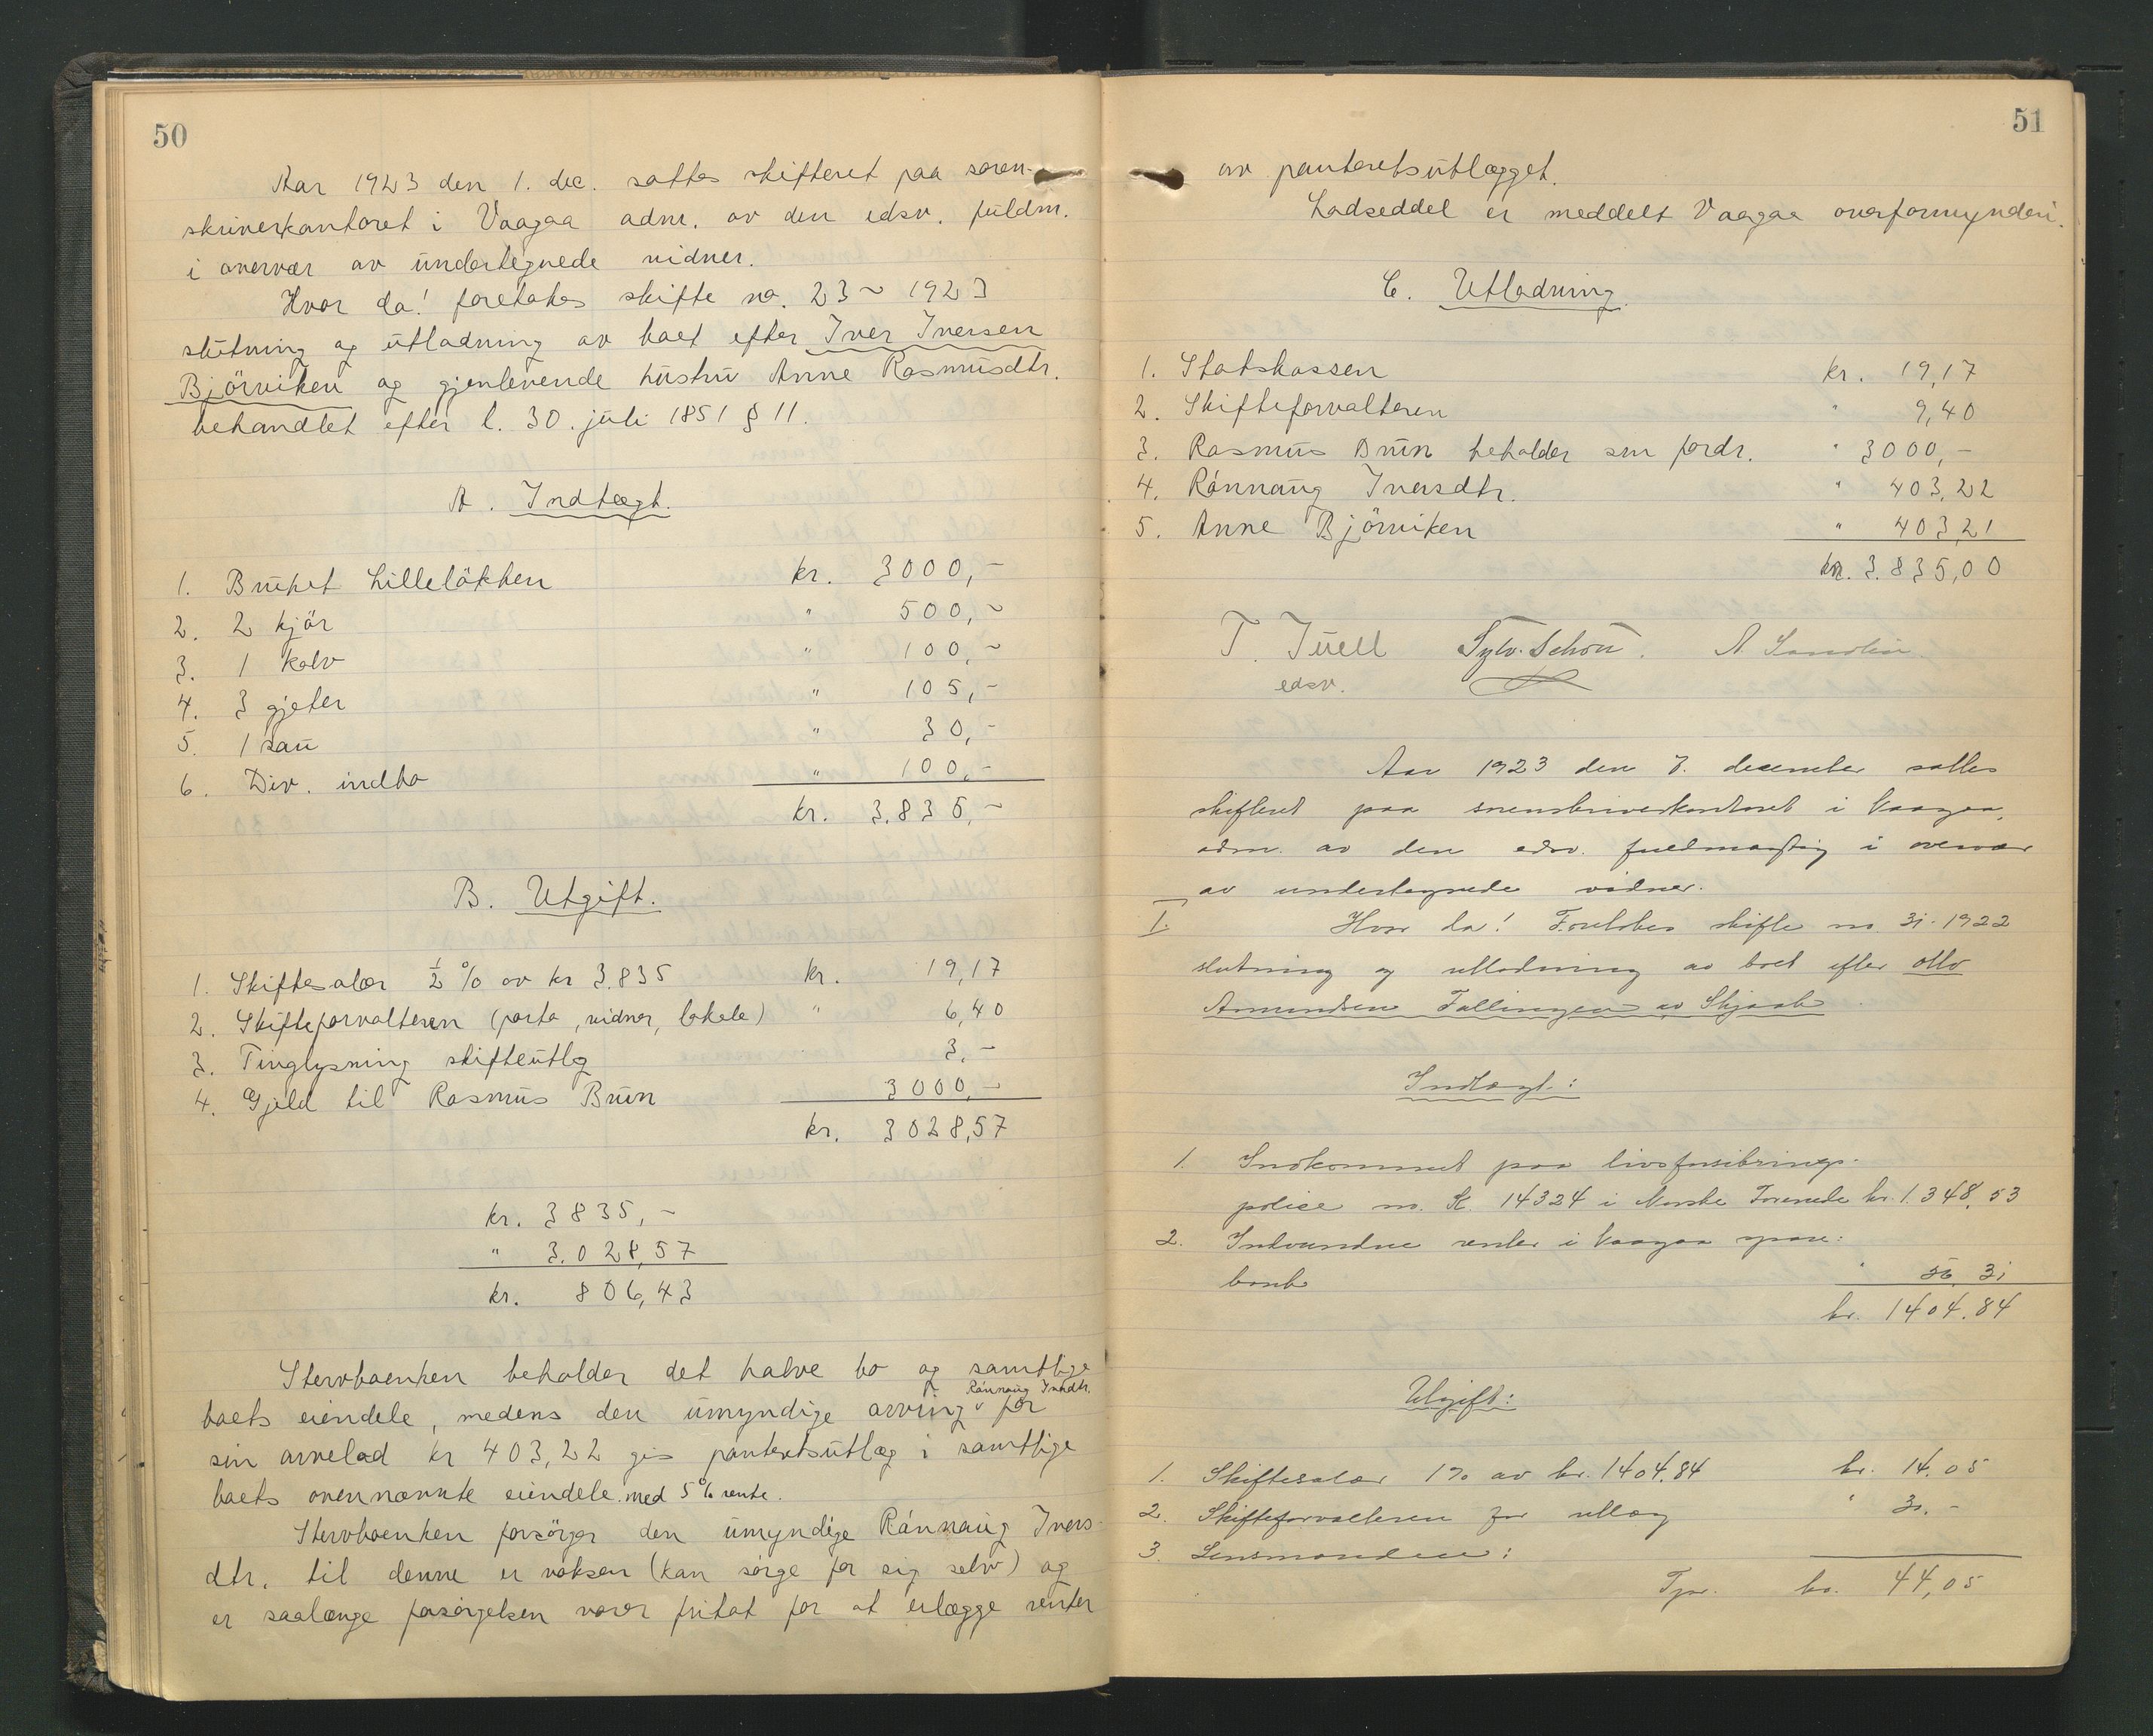 50
Aar 1923 den 1. dec. sattes skifteret paa soren-
skriverkontoret i Vaagaa adm. av den edsv. fuldm.
i overvær av undertegnede vidner.
Hvor da! foretokes skifte no. 23 ~ 1923
slutning og utlodning av boet efter Iver Iversen
Björviken og gjenlevende hustru Anne Rasmusdtr.
behandlet efter l. 30. juli 1851 § 11.
A. Indtægt.
1. Bruket Lilleløkken kr. 3000,-
2. 2 kjör " 500,~
3. 1 kalv " 100,~
4. 3 gjeter " 105,-
5. 1 sau " 30,-
6. Div. indbo " 100,-
kr. 3.835,~
B. Utgift.
1. Skiftesalær ½ % av kr 3.835 kr. 19,17
2. Skifteforvalteren (porto, vidner, lokale) " 6,40
3. Tinglysning skifteutlg 3,-
4. Gjeld til Rasmus Bruun 3000,-
kr. 3028,57
kr. 3835,-
" 3.028,57
kr. 806,43
Stervboenken beholder det halve bo og samtlige
boets eiendele, medens den umyndige arving Ránnaug Iversdtr. for
sin arvelod kr 403,22 gis panteretsutlæg i samtlige
boets ovennævnte eiendele med 5% rente.
Stervboenken forsörger den umyndige Ránnaug Ivers-
dtr. til denne er voksen (kan sörge for sig selv) og
er saalænge forsörgelsen varer fritat for at erlægge renter
51
av panteretsutlægget.
Lodseddel er meddelt Vaagaa overformynderi.
C. Utlodning.
1. Statskassen kr. 19,17
2. Skifteforvalteren " 9,40
3. Rasmus Bruun beholder sin fordr. " 3000,-
4. Ránnaug Iversdtr. " 403,22
5. Anne Bjørviken " 403,21
kr. 3.835,00
T. Juell Sylv. Schou. A. Sandlien
edsv.
Aar 1923 den 7. december sattes
skifteret paa sorenskriverkontoret i Vaagaa,
adm. av den edsv. fuldmægtig i overvær
av undertegnede vidner.
I. Hvor da! Foretokes skifte no. 31-1922
slutning og utlodning av boet efter Otto
Amundsen Tallingen av Skjaak.
Indtægt:
1. Indkommet paa livsforsikrings-
polise no. K. 14324 i Norske Forenede kr. 1.348,53
2. Indvundne renter i Vaagaa spare-
bank " 56,31
kr. 1404.84
Utgift:
1. Skiftesalær 1% av kr. 1404.84 kr. 14.05
2. Skifteforvalteren for utlæg " 30.-
3. Lensmanden:
Tpr. kr. 44,05